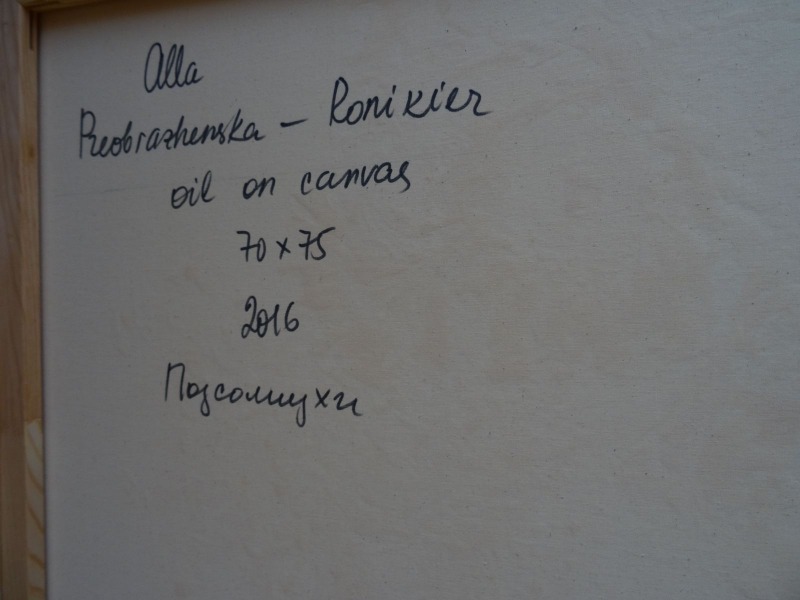 Alla
Preobrazhenska – Ronikier
oil on canvas
70 x 75
2016
Подсолнухи